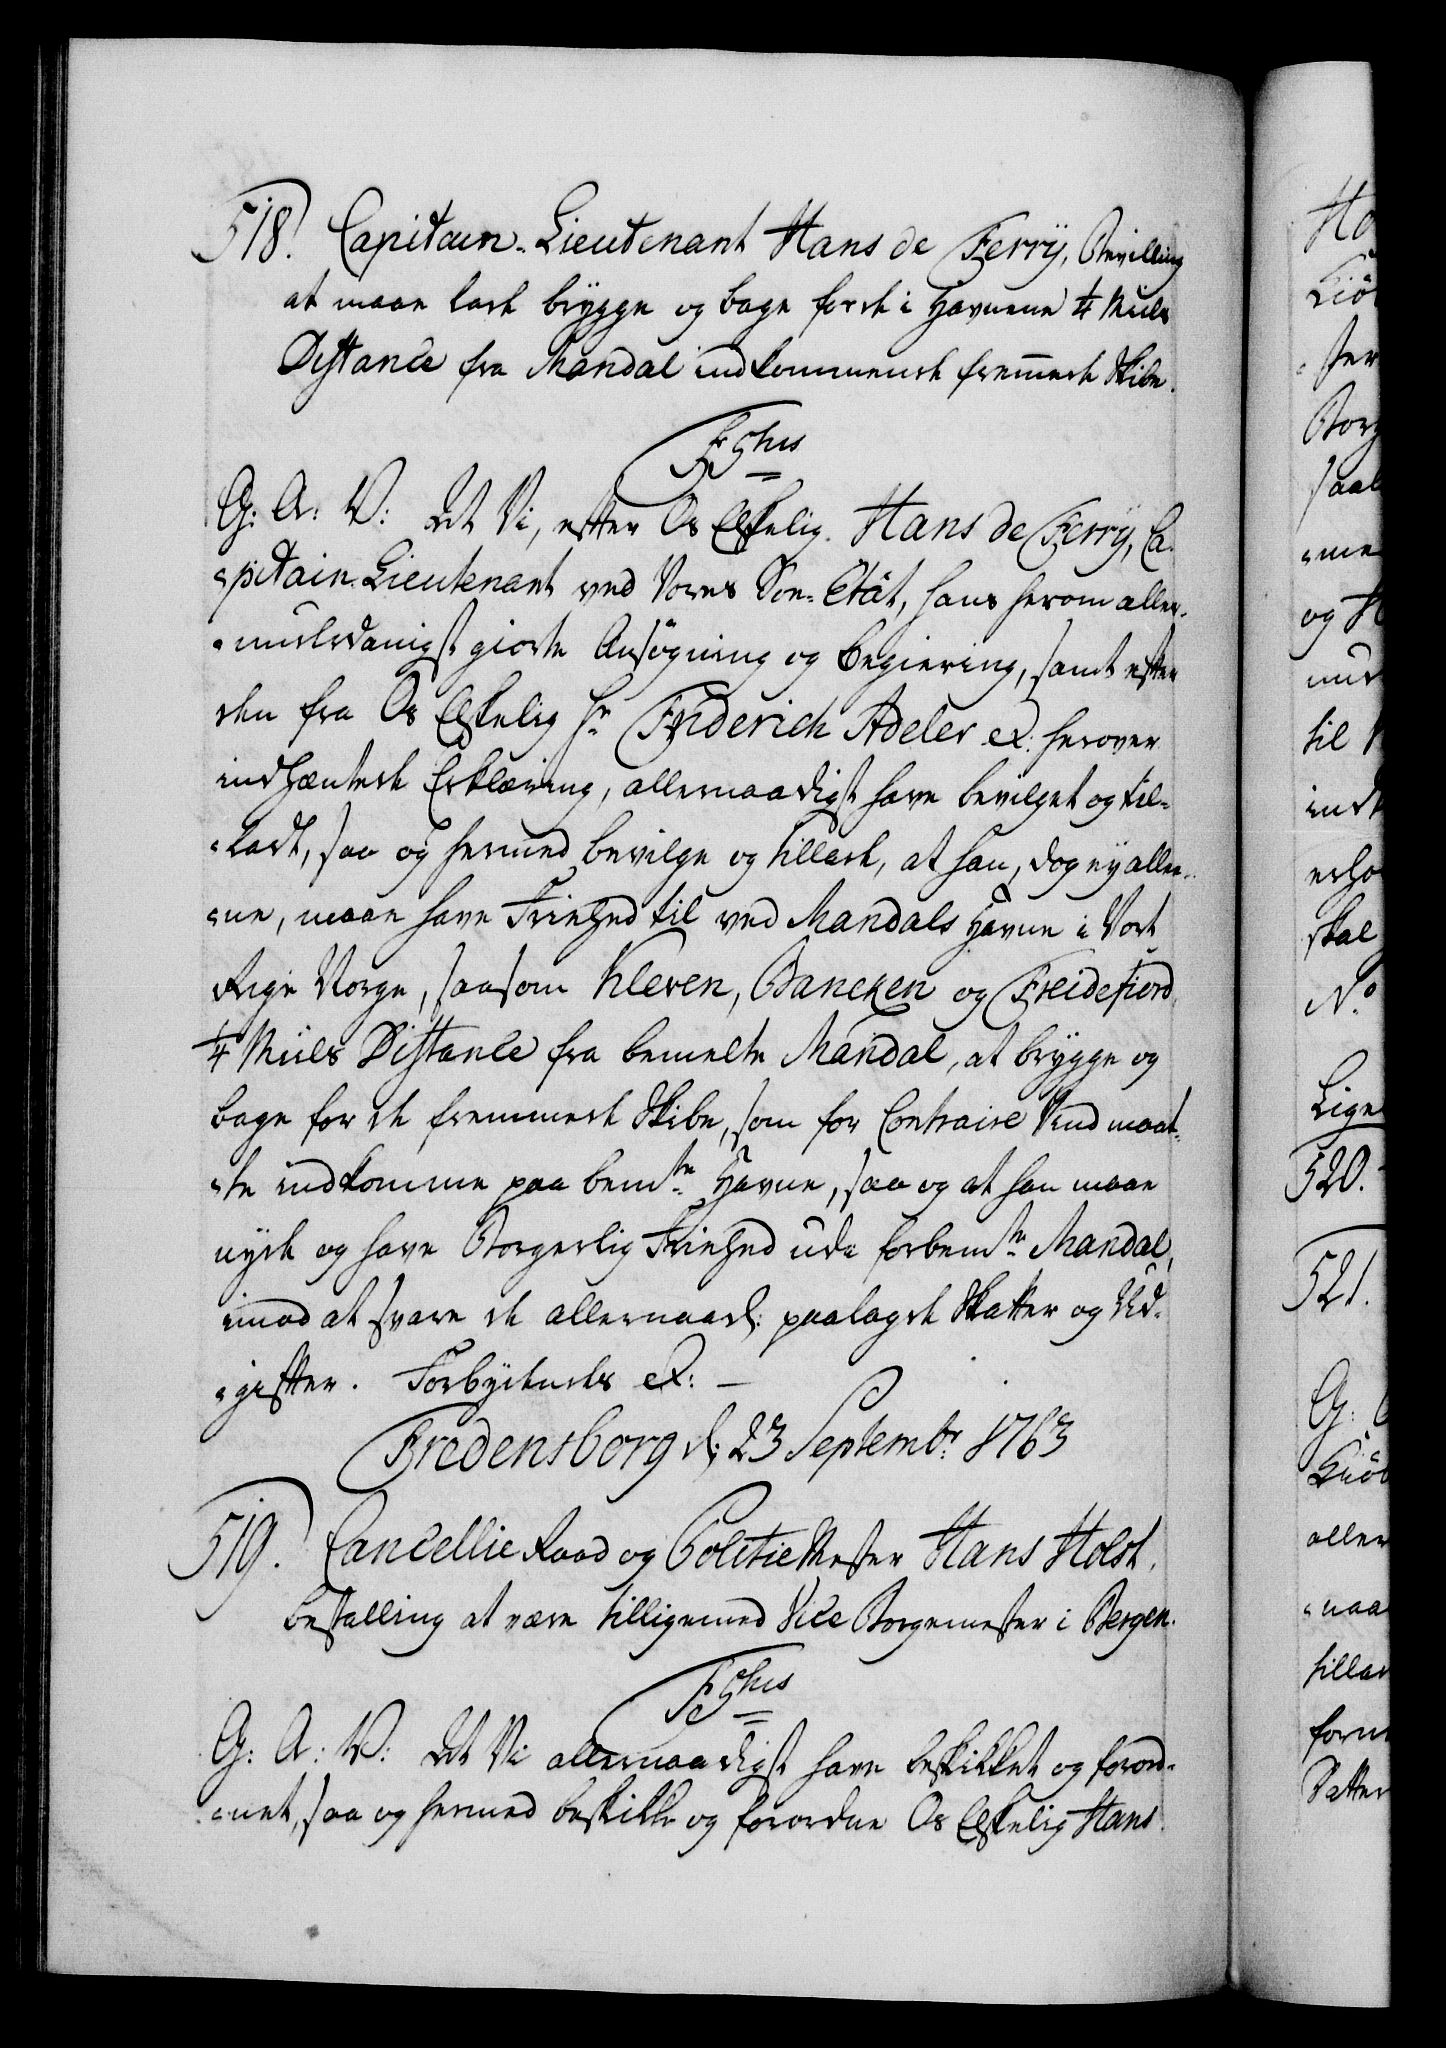 518. Capitain-Lieutenant Hans de Ferrÿ, Bevilling
at maae lade brÿgge og bage for de i Havnene 1/4 Miils
Distance fra Mandal indkommende fremmede Skibe.
F 5tus
G: A: V: At Vi, efter Os Elskelig Hans de Ferrÿ, Ca-
-pitain-Lieutenant ved Vores Søe-Etât, hans herom aller-
-underdanigst giorte Ansøgning og Begiering, samt efter
den fra Os Elskelig Hr Friderich Adeler etc: herover
indhentede Erklæring, allernaadigst have bevilget og til-
-ladt, saa og hermed bevilge og tillade, at han, dog eÿ alle-
-ne, maae have Friehed til ved Mandals Havne i Vort
Rige Norge, saasom Kleven, Bancken og Freidefiord
1/4 Miils Distance fra bemelte Mandal, at brÿgge og
bage for de fremmede Skibe, som for Contraire Vind maat-
-te indkomme paa bemte Havne, saa og at han maae
nÿde og have Borgerlig Friehed udi forbemte Mandal,
imod at svare de allernaad: paalagde Skatter og Ud-
-gifter. Forbÿdendes etc: —
Fredensborg d: 23 Septembr 1763
519. Cancellie Raad og Politie Mester Hans Holst,
Bestalling at være tilligemed Vice Borgemester i Bergen.
F 5tus
G: A: V: At Vi allernaadigst have beskikket og forord-
-net, saa og hermed beskikke og forordne Os Elskelig Hans
Ho
Kiö
-ster
Borg
saal
-me
og
und
til
ind
erho
skal
No
Lige
520.
521.
G:
Kiöb
aller
-naa
tillad
forn
Datter